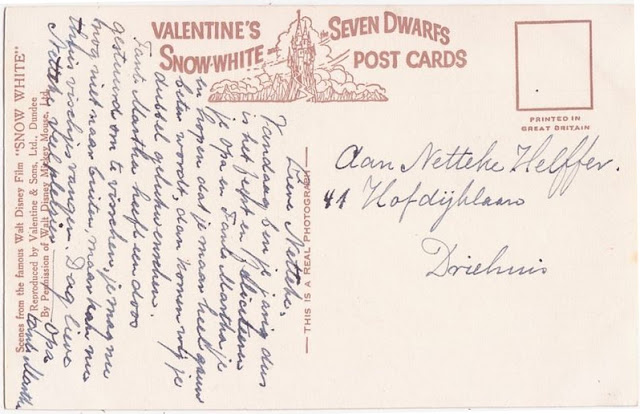 VALENTINE'S
SNOW-WHITE and the SEVEN DWARFS
POST CARDS
PRINTED IN
GREAT BRITAIN
Scenes from the famous Walt Disney Film "SNOW WHITE"
Reproduced by Valentine & Sons, Ltd., Dundee
By Permission of Walt Disney Mickey Mouse, Ltd.
THIS IS A REAL PHOTOGRAPH
Lieve Netteke.
Vandaag ben je jarig dus
is het feest en feliciteeren
je Opa en Tante Martha je
en hopen dat je maar heel gauw
beter wordt, dan komen wij je
dubbel gelukwenschen.
Tante Martha heeft een doos
gestuurd om te visschen, je mag nu
nog niet naar buiten, maar kan nu
thuis vischjes vangen. Dag lieve
Opa
tante Martha
Aan Netteke Helffer.
41 Hofdijklaan
Driehuis